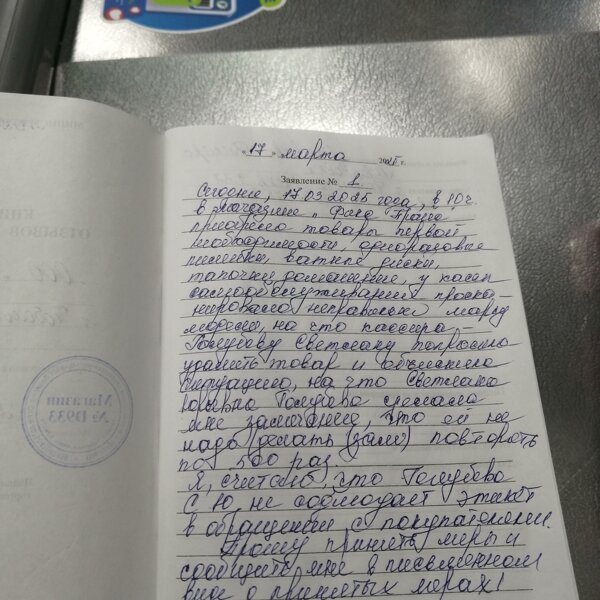 « 17 » марта 2025 г.
Заявление № 1
Сегодня, 17.03.2025 года, в 10 ч.
в магазине "Фикс Прайс
приобрела товары первой
необходимости, одноразовые
пелёнки, ватные диски,
тапочки домашние, у кассы
самообслуживания проска-
нировала неправильно марку
модели, на что кассира -
Голубеву Светлану попросила
удалить товар и объяснила
ситуацию, на что Светлана
Юрьевна Голубева сделала
мне замечание, что ей не
надо делать (зам) повторять
по 500 раз.
Я, считаю, что Голубева
С.Ю. не соблюдает этикет
в обращении с покупателями.
Прошу принять меры и
сообщить мне в письменном
виде о принятых мерах!
Магазин
№ D933